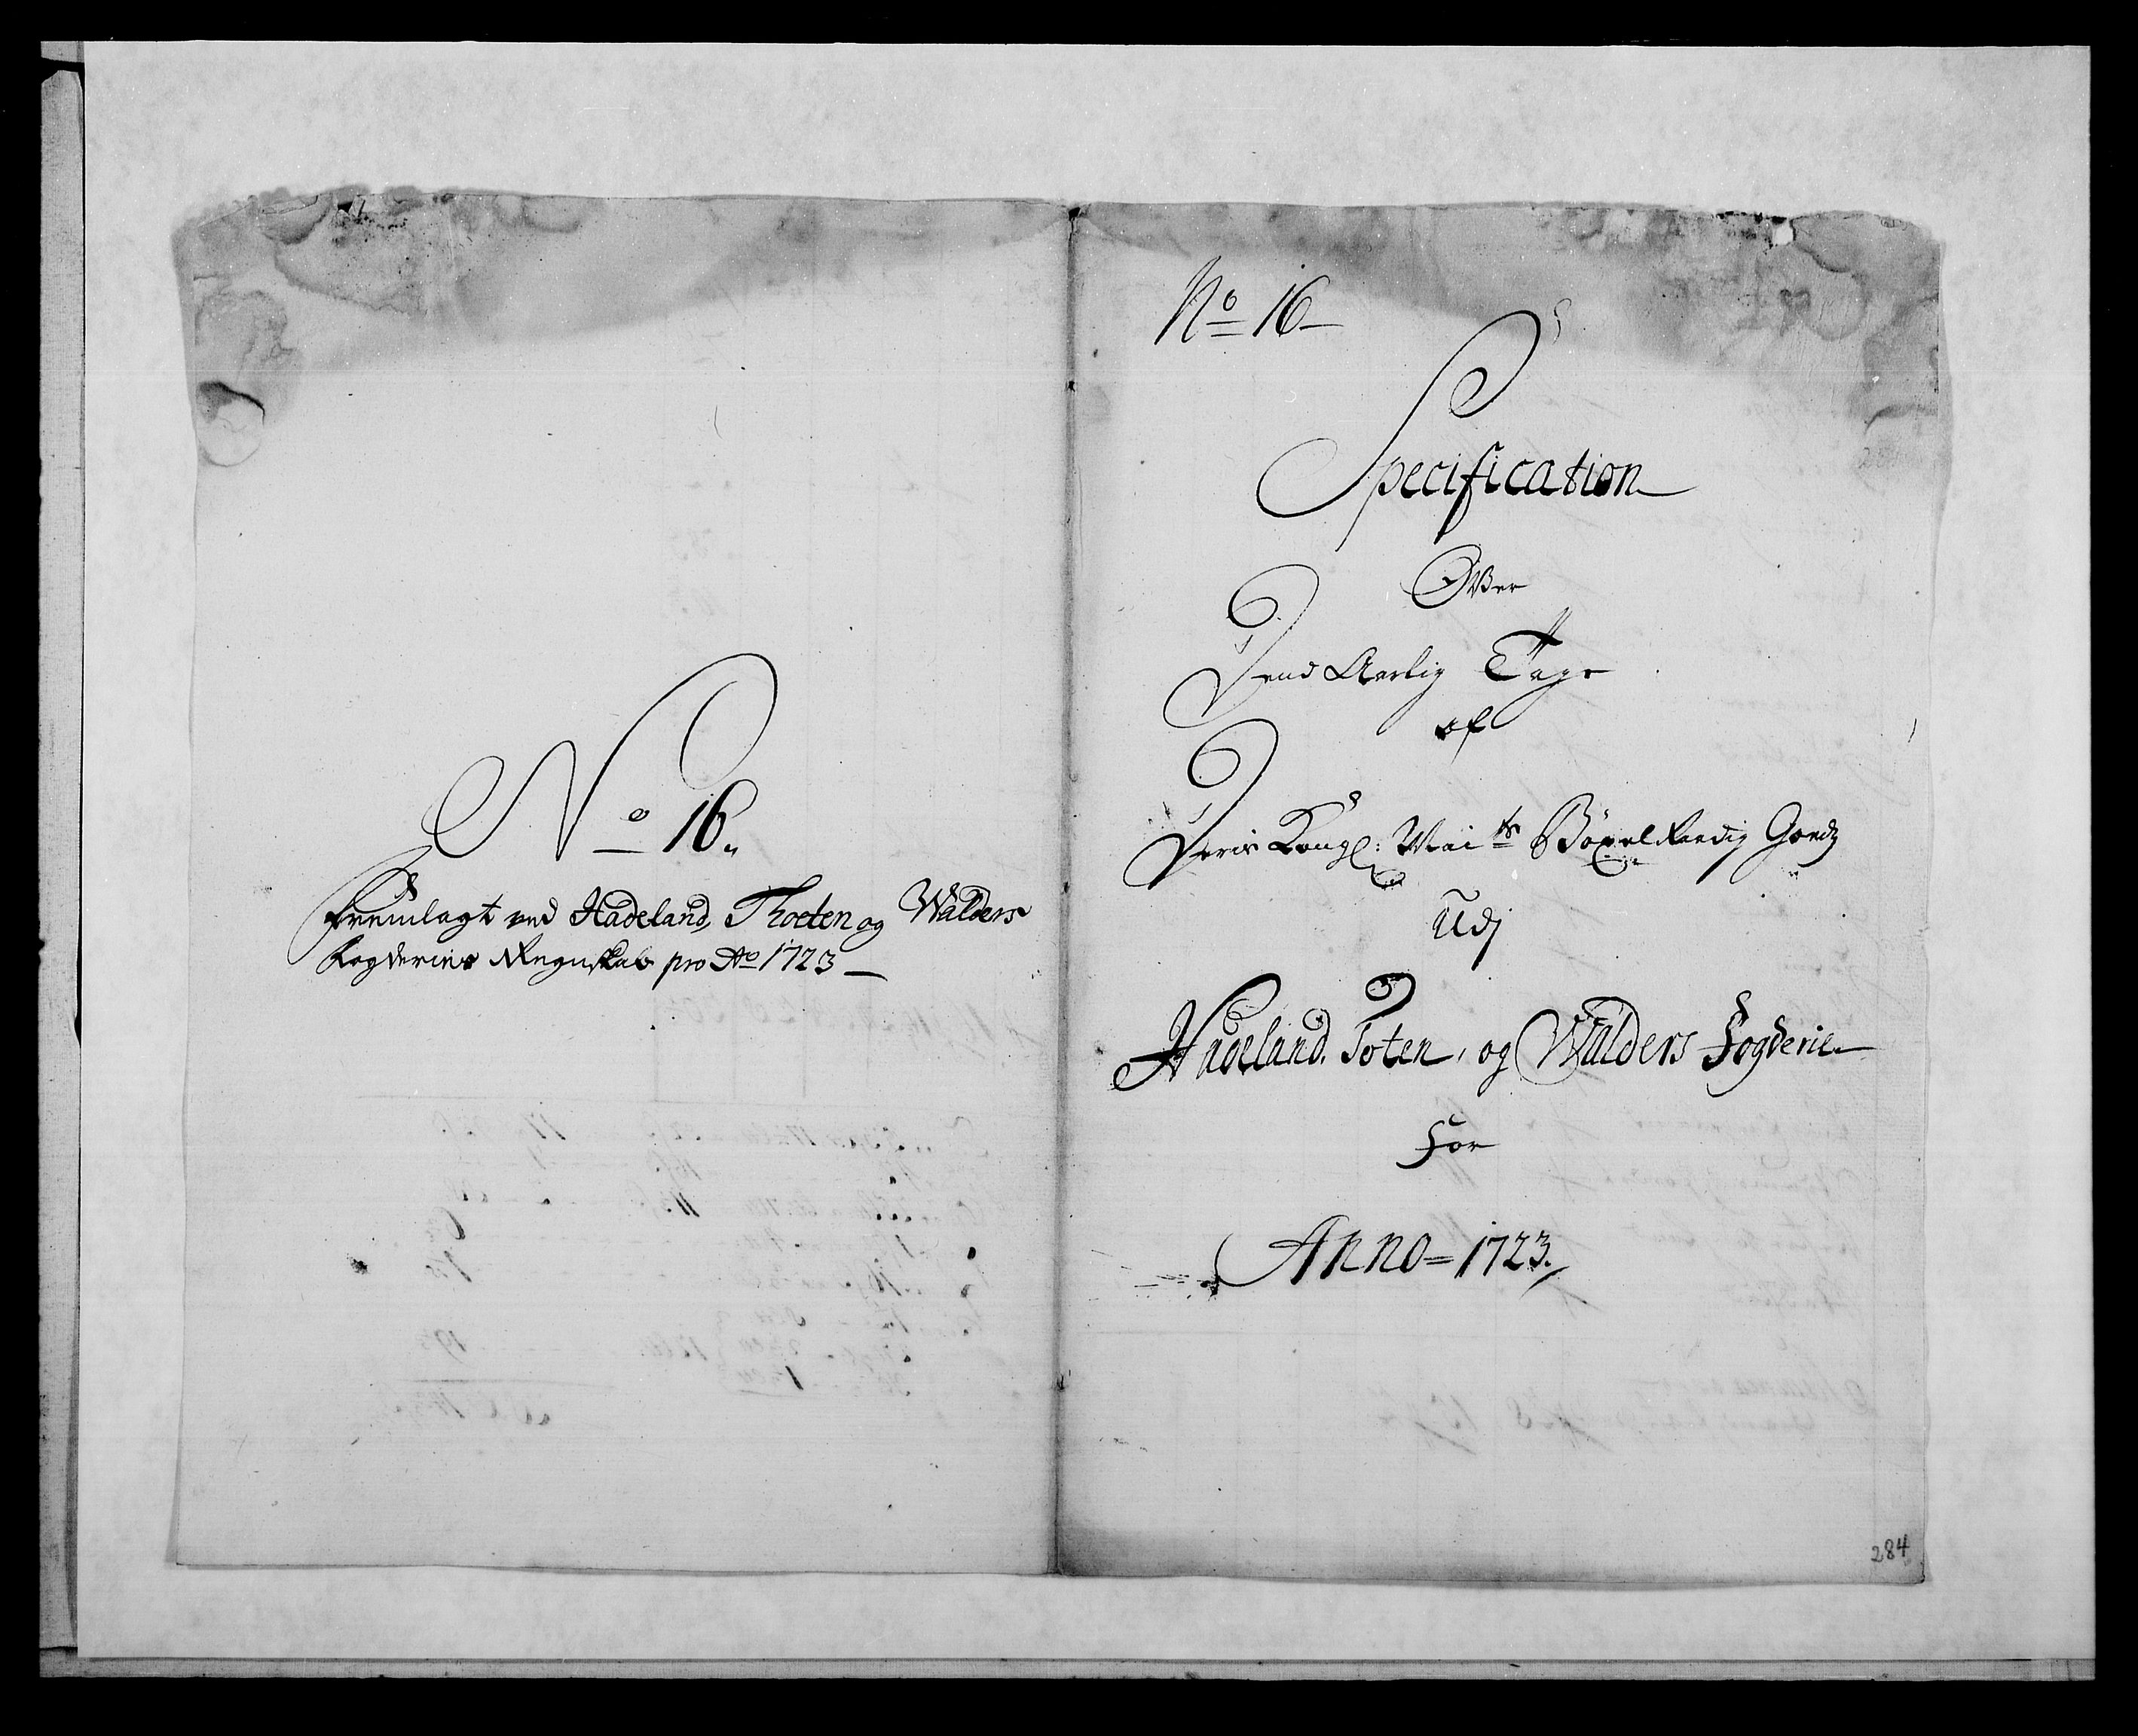 No 16.
Fremlagt ved Hadeland, Thoeten og Walders
Fogderies Regnskab pro Ao 1723
No 16
Specification
Over
Dend Aarlig Tage
af
Deris Kongl: Maits Böxelraadig Goedz
Udj
Hadeland, Toten, og Walders Fogderie
For
Anno 1723.
284